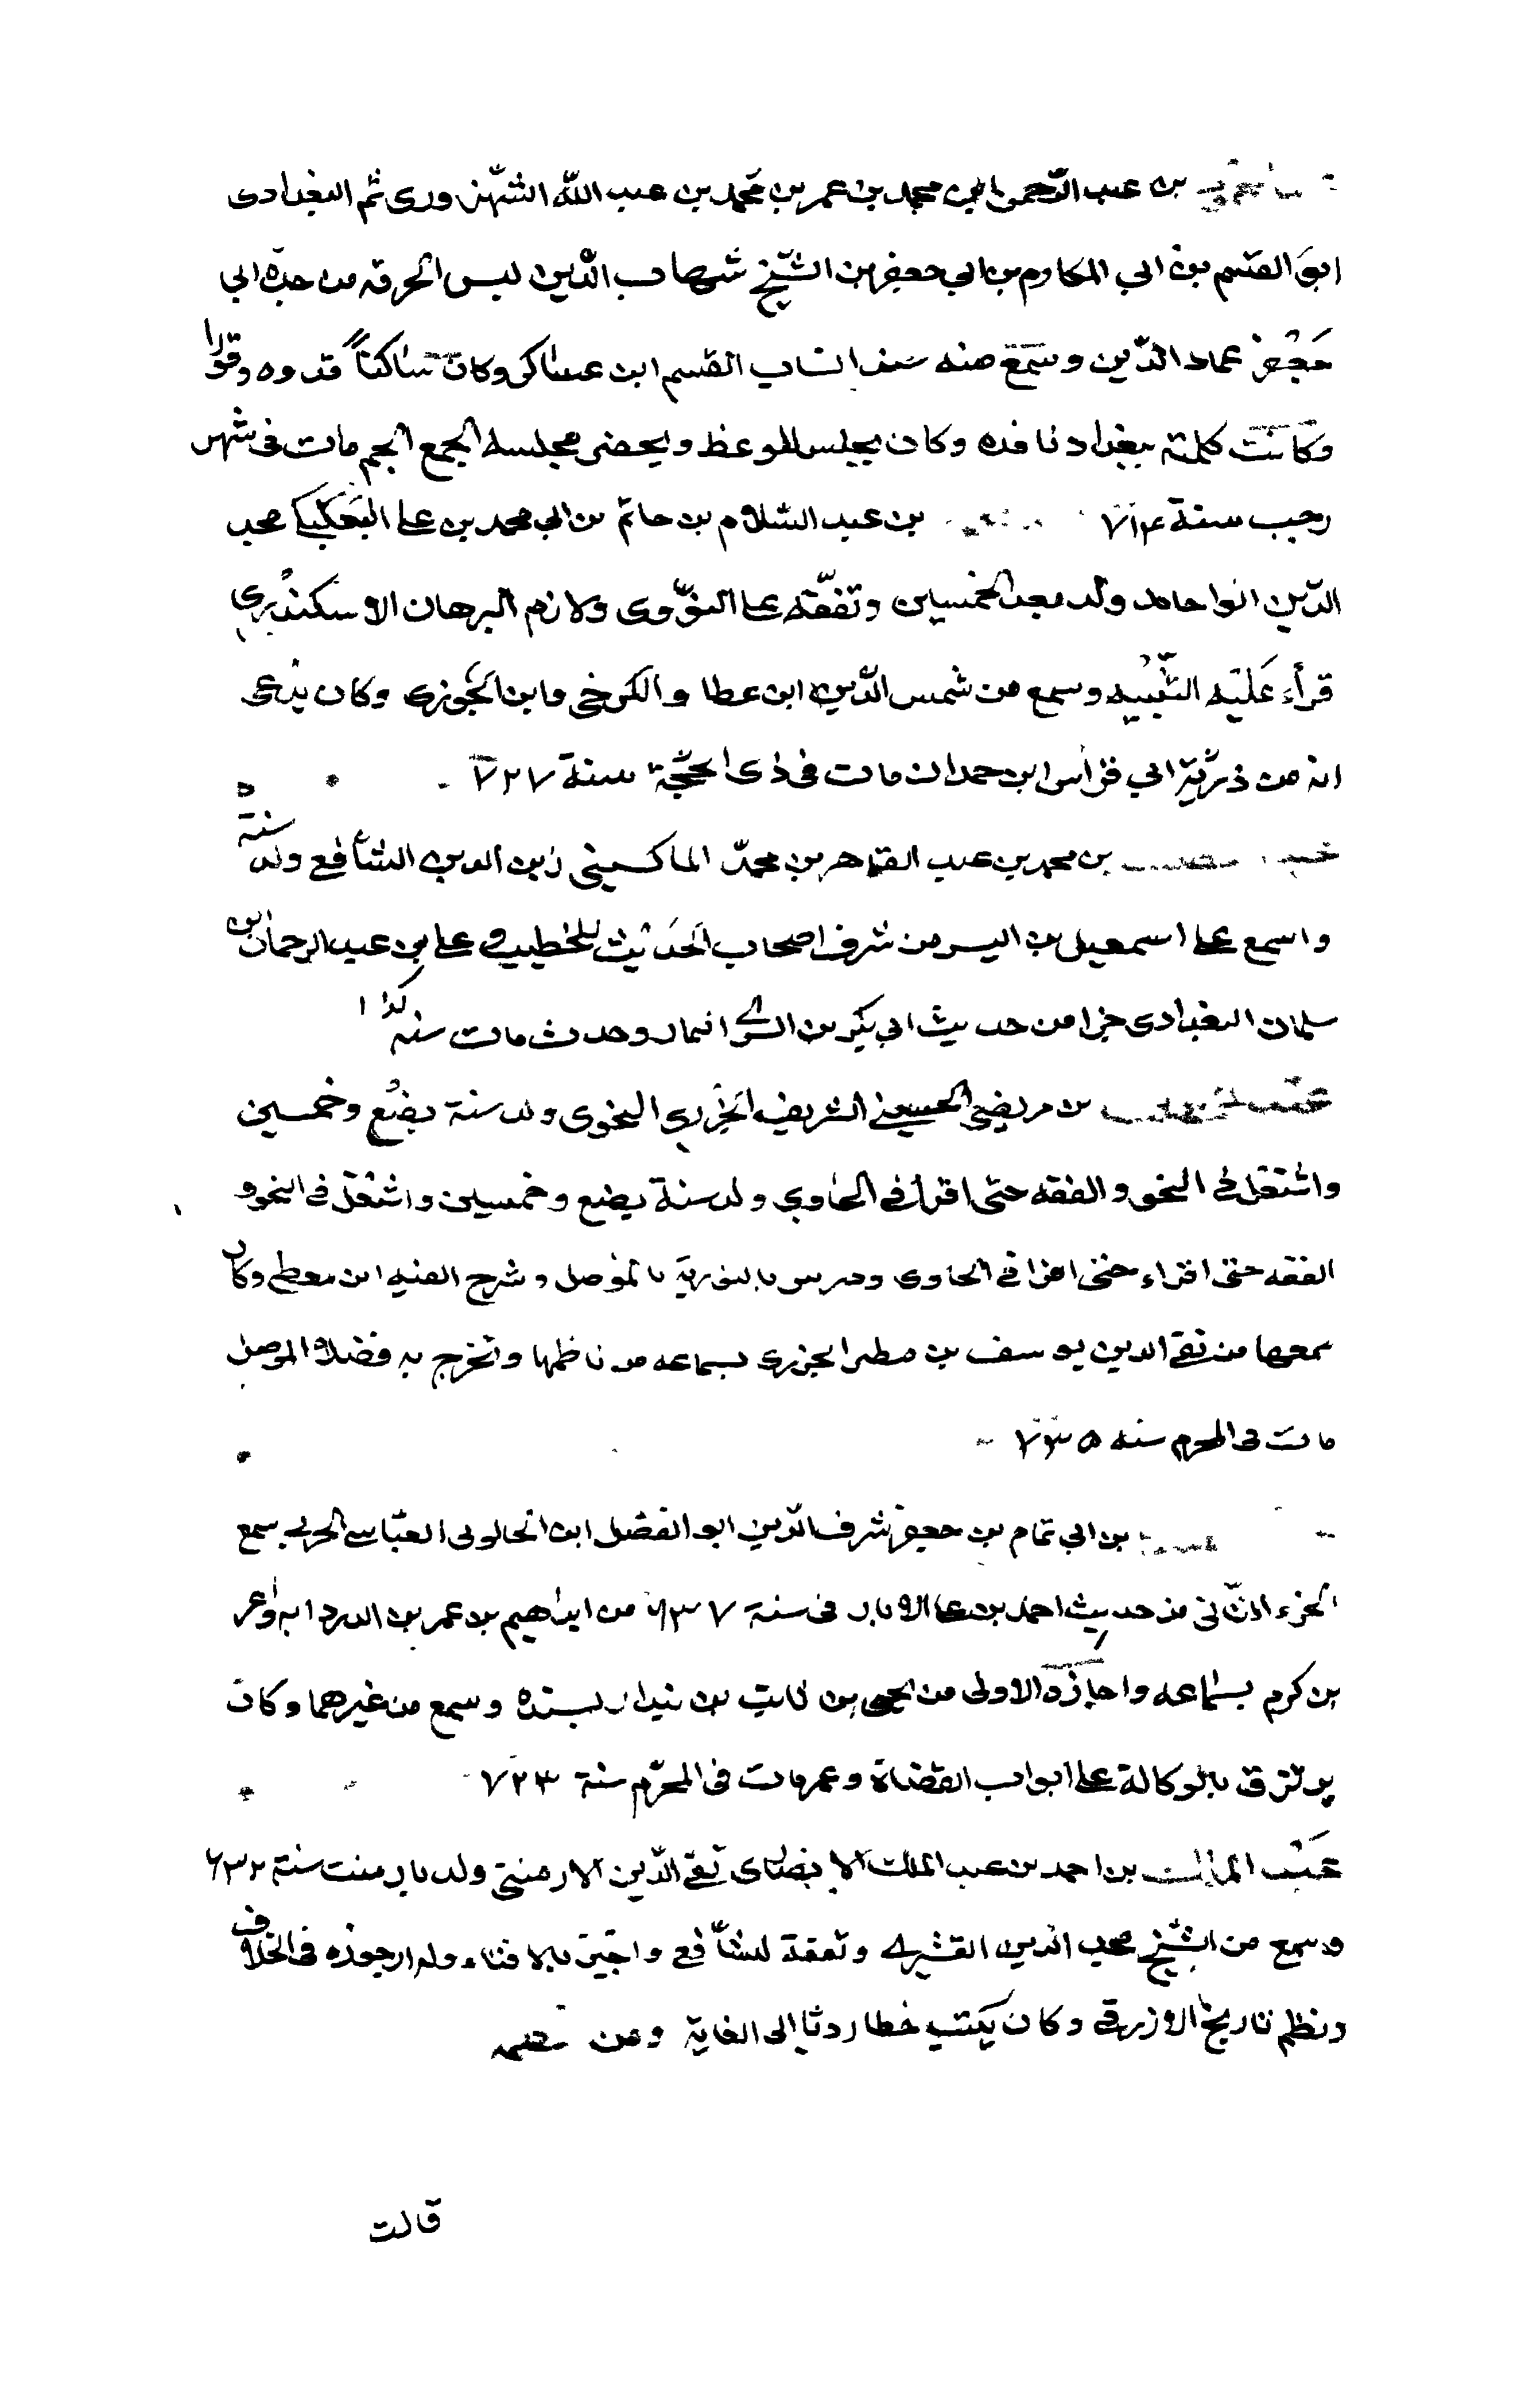 بن عبد الرّحمن بن محمد بن عمر بن محمد بن عبد اللّه الشّهرزورى ثم البغدادى
ابو القسم بن ابي المكارم بن ابي جعفر بن الشّيخ شهاب الدّين لبس الخرقه من جده ابي
جعفر عماد الدّين وسمع منه القسم ابن عساكر وكان ساكناً قدوه وقورا
وكانت كلمته ببغداد نافده وكان يجلس للوعظ ويحضر مجلسه الجمع الجم مات فى شهر
رجب سنة ٧١٤ بن عبد السّلام بن حاتم بن ابي محمد بن على البعلبكى محب
الدّين ابوا حامد ولد بعد الخمسين وتفقّه على النوّوى ولازم البرهان الاسكندرى
قرأء عَليَه التنّبيه وسمع من شمس الدّين ابن عطا والكرخى وابن الجوزى وكان يدعى
انه من ذرّيّة ابي فراس ابن حمدان مات فى ذى الحجّة سنة ٧٢٧
بن محمد بن عبد القاهر بن محمدّ الماكسينى زين الدين الشافعى ولد سنة
واسمع على اسمعيل بن اليسر من شرف اصحاب الحديث للخطيب و على بن عبد الرحمان بن
سلمان البغدادى جزا من حديث ابي بكر بن وحدث مات سنه كذا
بن مرتضى الحسينى الشريف الجزرى النحوى ولد سنة بضع وخمسين
واشتغل فى النحو والفقه حتى اقرأ فى الحاوى ولد سنة بضع وخمسين واشتغل فى النحو و
الفقه حتى اقراء حتى اقرا فى الحاوى ودرس بالنوريّة بالموصل وشرح الفيه ابن معطى وكان
سمعها من تقى الدين يوسف بن مطر الجزرى بسماعه من ناظمها وتخرج به فضلاء الموصل
مات فى المحرم سنه ٧٣٥
بن ابي تمام بن جعفر شرف الدّين ابو الفضل ابن العبّاسى الحربى سمع
الجزء الثانى من حديث احمد بن على الابار فى سنة ٦٣٧ من ابراهيم بن عمر بن
بن كرم بسماعه واجازة الاولى من يحيى بن ثابت بن بندار بسنده وسمع من غيرهما وكان
يرتزق بالوكالة على ابواب القضاة وعمر مات فى المحرّم سنة ٧٢٣
عَبْد الملك بن احمد بن عبد الملك الانصارى تقى الدّين الارمنتى ولد بارمنت سنة ٦٣٢
وسمع من الشّيخ مجب الدين القشيرى وتفقه للشافعى واجيز بالافتاء وله ارجوزه فى الخلاف
ونظم تاريخ الازرقى وكان يكتب خطا ردئا الى الغاية ومن نظمه
قالت